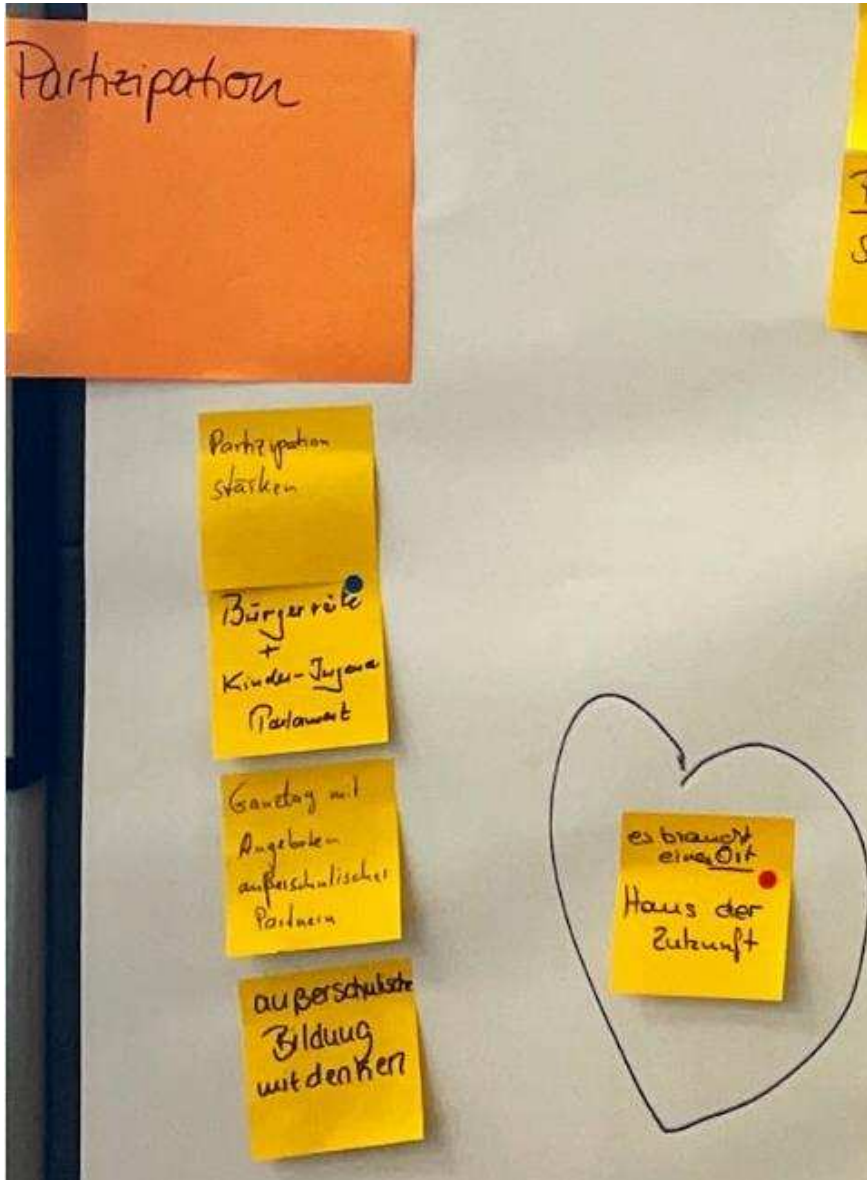 Partizipation
Partizipation
stärken
Bürgerräte
+
Kinder-Jugend
Parlament
Ganztag mit
Angeboten
außerschulischer
Partnern
außerschulische
Bildung
mitdenken
es braucht
einen Ort
Haus der
Zukunft